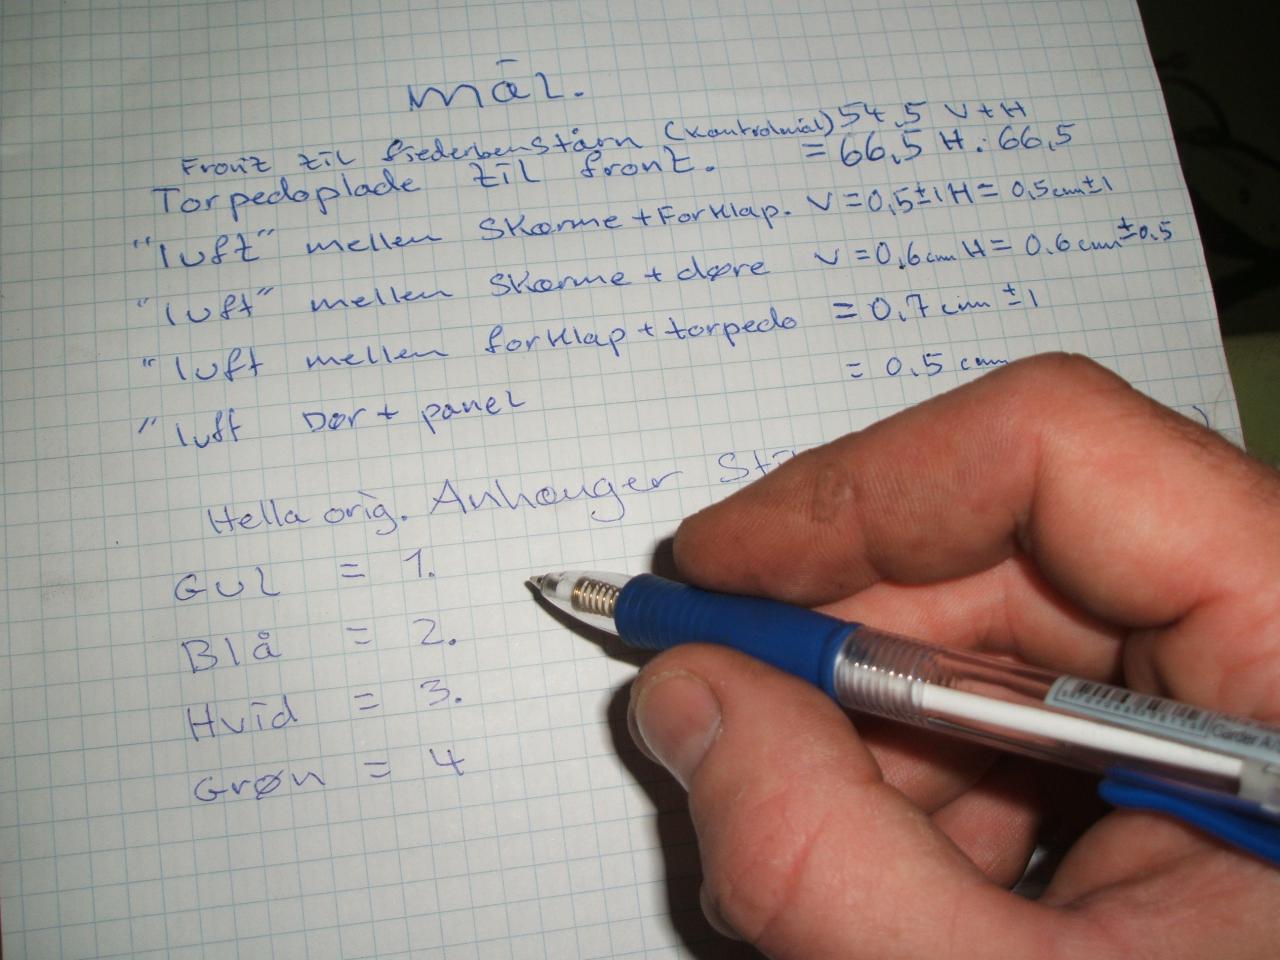 mål.
Front til fjederbenstårn (Kontrolmål) 54,5 V+H
Torpedoplade til front. = 66,5 H: 66,5
"luft" mellem Skærme + Forklap. V = 0,5±1 H = 0,5cm±1
"luft" mellem Skærme + døre V = 0,6cm H = 0.6 cm ±0.5
"luft mellem forklap + torpedo = 0,7 cm ±1
"luft Dør + panel = 0.5 cm
Hella orig. Anhænger
Gul = 1.
Blå = 2.
Hvid = 3.
Grøn = 4